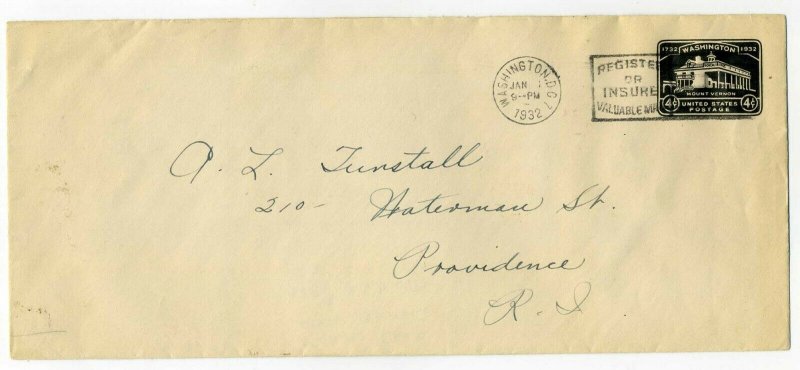 WASHINGTON, D.C. 7
JAN 1
9-PM
1932
REGISTE
OR
INSURE
VALUABLE MA
1732 WASHINGTON 1932
MOUNT VERNON
4¢ UNITED STATES 4¢
POSTAGE
A. L. Tunstall
210- Waterman St.
Providence
R. I